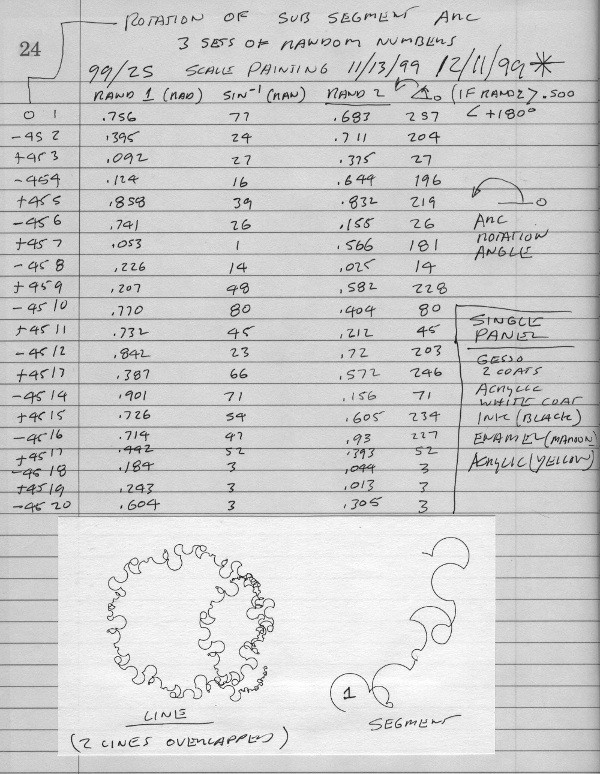 ROTATION OF SUB SEGMENT ARC
24
3 SETS OF RANDOM NUMBERS
99/25 SCALE PAINTING 11/13/99 12/11/99 *
RAND 1 (RAD) SIN⁻¹ (RAN) RAND 2 ∠0 (IF RAND 2 > .500
0 1 .756 77 .683 257 < +180°
-45 2 .395 24 .711 204
+45 3 .092 27 .375 27
-45 4 .124 16 .644 196
+45 5 .858 39 .832 219
-45 6 .741 26 .155 26
+45 7 .053 1 .566 181
-45 8 .226 14 .025 14
+45 9 .207 48 .582 228
-45 10 .770 80 .404 80
+45 11 .732 45 .212 45
-45 12 .842 23 .72 203
+45 13 .387 66 .572 246
-45 14 .901 71 .156 71
+45 15 .726 54 .605 234
-45 16 .714 47 .93 227
+45 17 .442 52 .393 52
-45 18 .184 3 .044 3
+45 19 .243 3 .013 3
-45 20 .604 3 .305 3
0
ARC
ROTATION
ANGLE
SINGLE
PANEL
GESSO
2 COATS
ACRYLIC
WHITE COAT
INK (BLACK)
ENAMEL (MAROON)
ACRYLIC (YELLOW)
1
LINE
(2 LINES OVERLAPPED)
SEGMENT